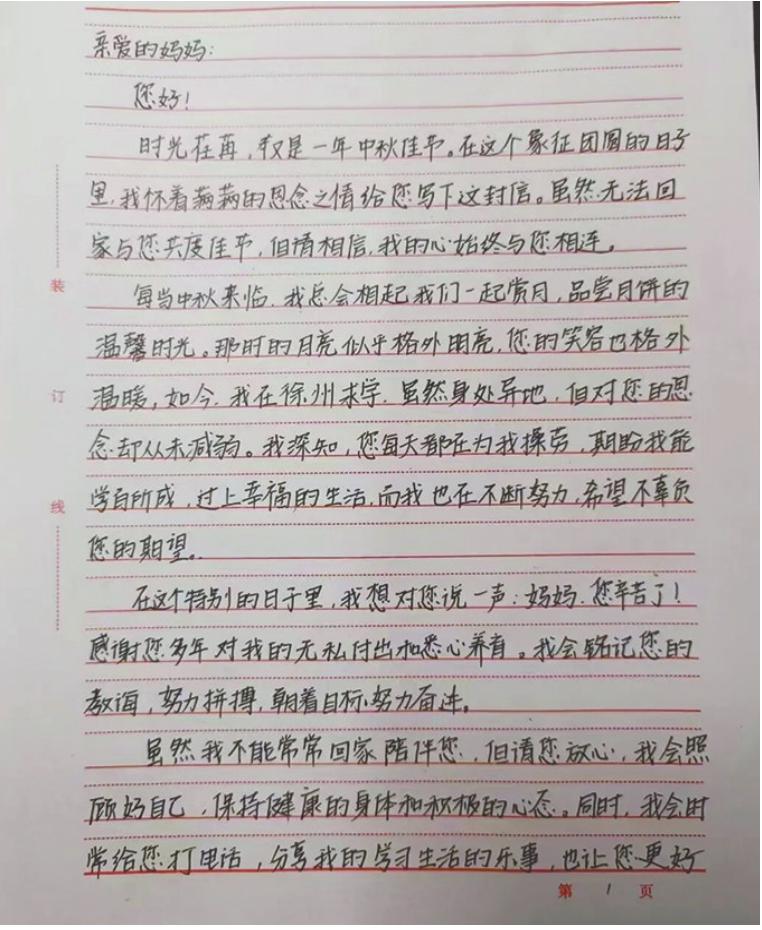 亲爱的妈妈:
您好!
时光荏苒,又是一年中秋佳节。在这个象征团圆的日子
里,我怀着满满的思念之情给您写下这封信。虽然无法回
家与您共度佳节,但请相信,我的心始终与您相连。
每当中秋来临,我总会相起我们一起赏月,品尝月饼的
温馨时光。那时的月亮似乎格外明亮,您的笑容也格外
温暖,如今,我在徐州求学,虽然身处异地,但对您的思
念却从未减弱。我深知,您每天都在为我操劳,期盼我能
学自所成,过上幸福的生活,而我也在不断努力,希望不辜负
您的期望。
在这个特别的日子里,我想对您说一声:妈妈,您辛苦了!
感谢您多年对我的无私付出和悉心养育。我会铭记您的
教诲,努力拼搏,朝着目标努力奋进。
虽然我不能常常回家陪伴您,但请您放心,我会照
顾好自己,保持健康的身体和积极的心态。同时,我会时
常给您打电话,分享我的学习生活的乐事,也让您更好
装
订
线
第 1 页